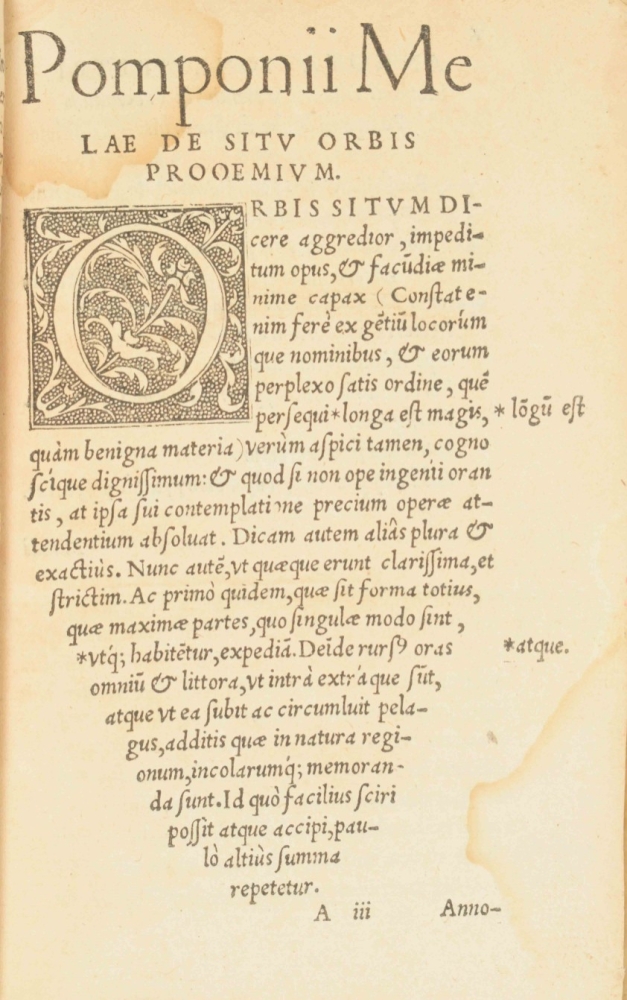 Pomponii Me
LAE DE SITV ORBIS
PROOEMIVM.
ORBIS SITVM DI-
cere aggredior, impedi-
tum opus, & facūdiæ mi-
nime capax (Constat e-
nim ferè ex gētiū locorúm
que nominibus, & eorum
perplexo satis ordine, quē
persequi*longa est magis, * lōgū est
quàm benigna materia) verùm aspici tamen, cogno
scíque dignissimum: & quod si non ope ingenii oran
tis, at ipsa sui contemplatione precium operæ at-
tendentium absoluat. Dicam autem aliâs plura &
exactiùs. Nunc autē, vt quæque erunt clarissima, et
strictim. Ac primò quidem, quæ sit forma totius,
quæ maximæ partes, quo singulæ modo sint,
*vtq́; habitētur, expediā. Deīde rursꝰ oras *atque.
omniū & littora, vt intrà extráque sūt,
atque vt ea subit ac circumluit pela-
gus, additis quæ in natura regi-
onum, incolarumq́; memoran-
da sunt. Id quò facilius sciri
possit atque accipi, pau-
lò altiùs summa
repetetur.
A iii Anno-